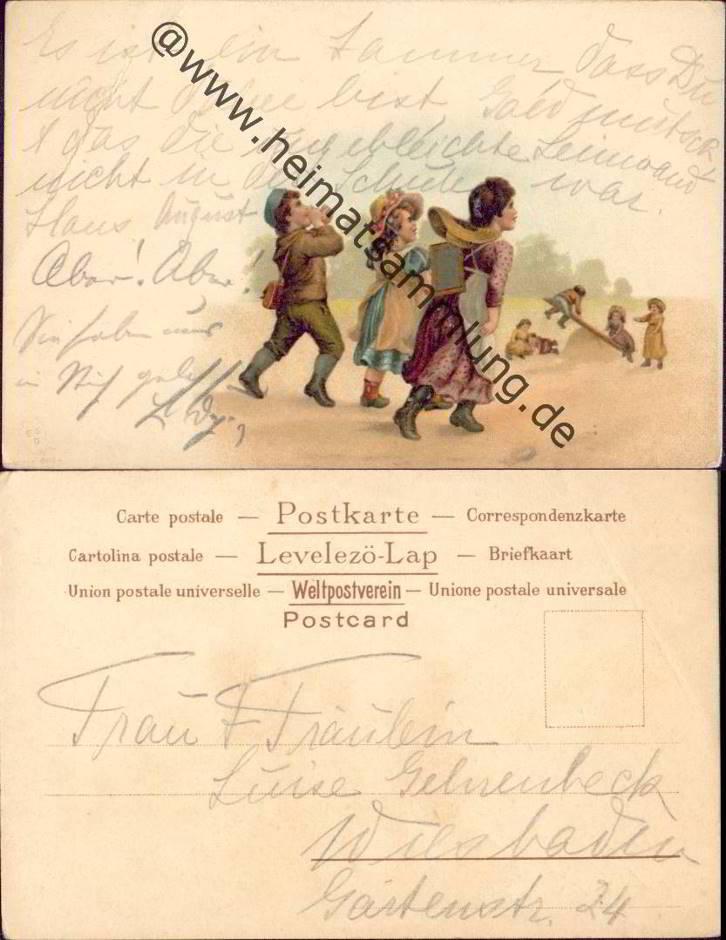 Es ist ein Jammer, dass Du
nicht dabei bist. Gold
& das die ungebleichte Leinwand
nicht in der Schule war.
Hans August
Aber! Aber!
Sie haben uns
in
@www.heimatsammlung.de
Carte postale — Postkarte — Correspondenzkarte
Cartolina postale — Levelezö-Lap — Briefkaart
Union postale universelle — Weltpostverein — Unione postale universale
Postcard
Frau F Fräulein
Luise Gehrenbeck
Wiesbaden
Gartenstr. 24